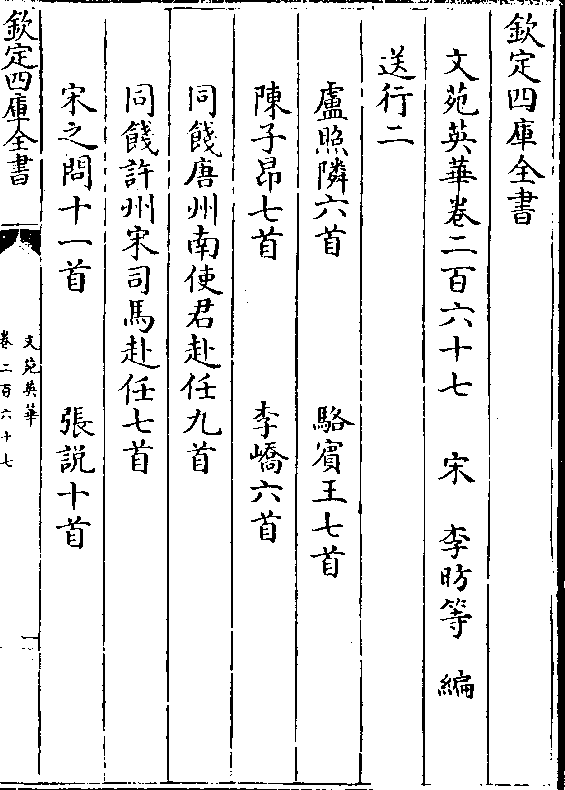 欽定四庫全書
文苑英華卷二百六十七　宋　李昉等　編
送行二
盧照隣六首　駱賓王七首
陳子昂七首　李嶠六首
同餞唐州南使君赴任九首
同餞許州宋司馬赴任七首
宋之問十一首　張説十首
欽定四庫全書
文苑英華
卷二百六十七
一